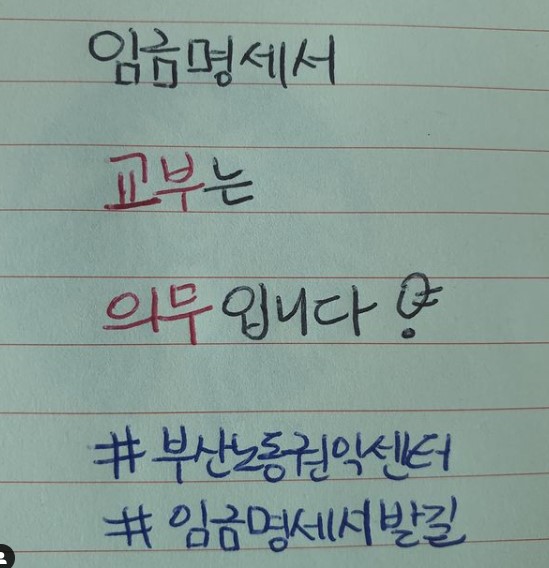 임금명세서
교부는
의무입니다
#부산노동권익센터
#임금명세서발길